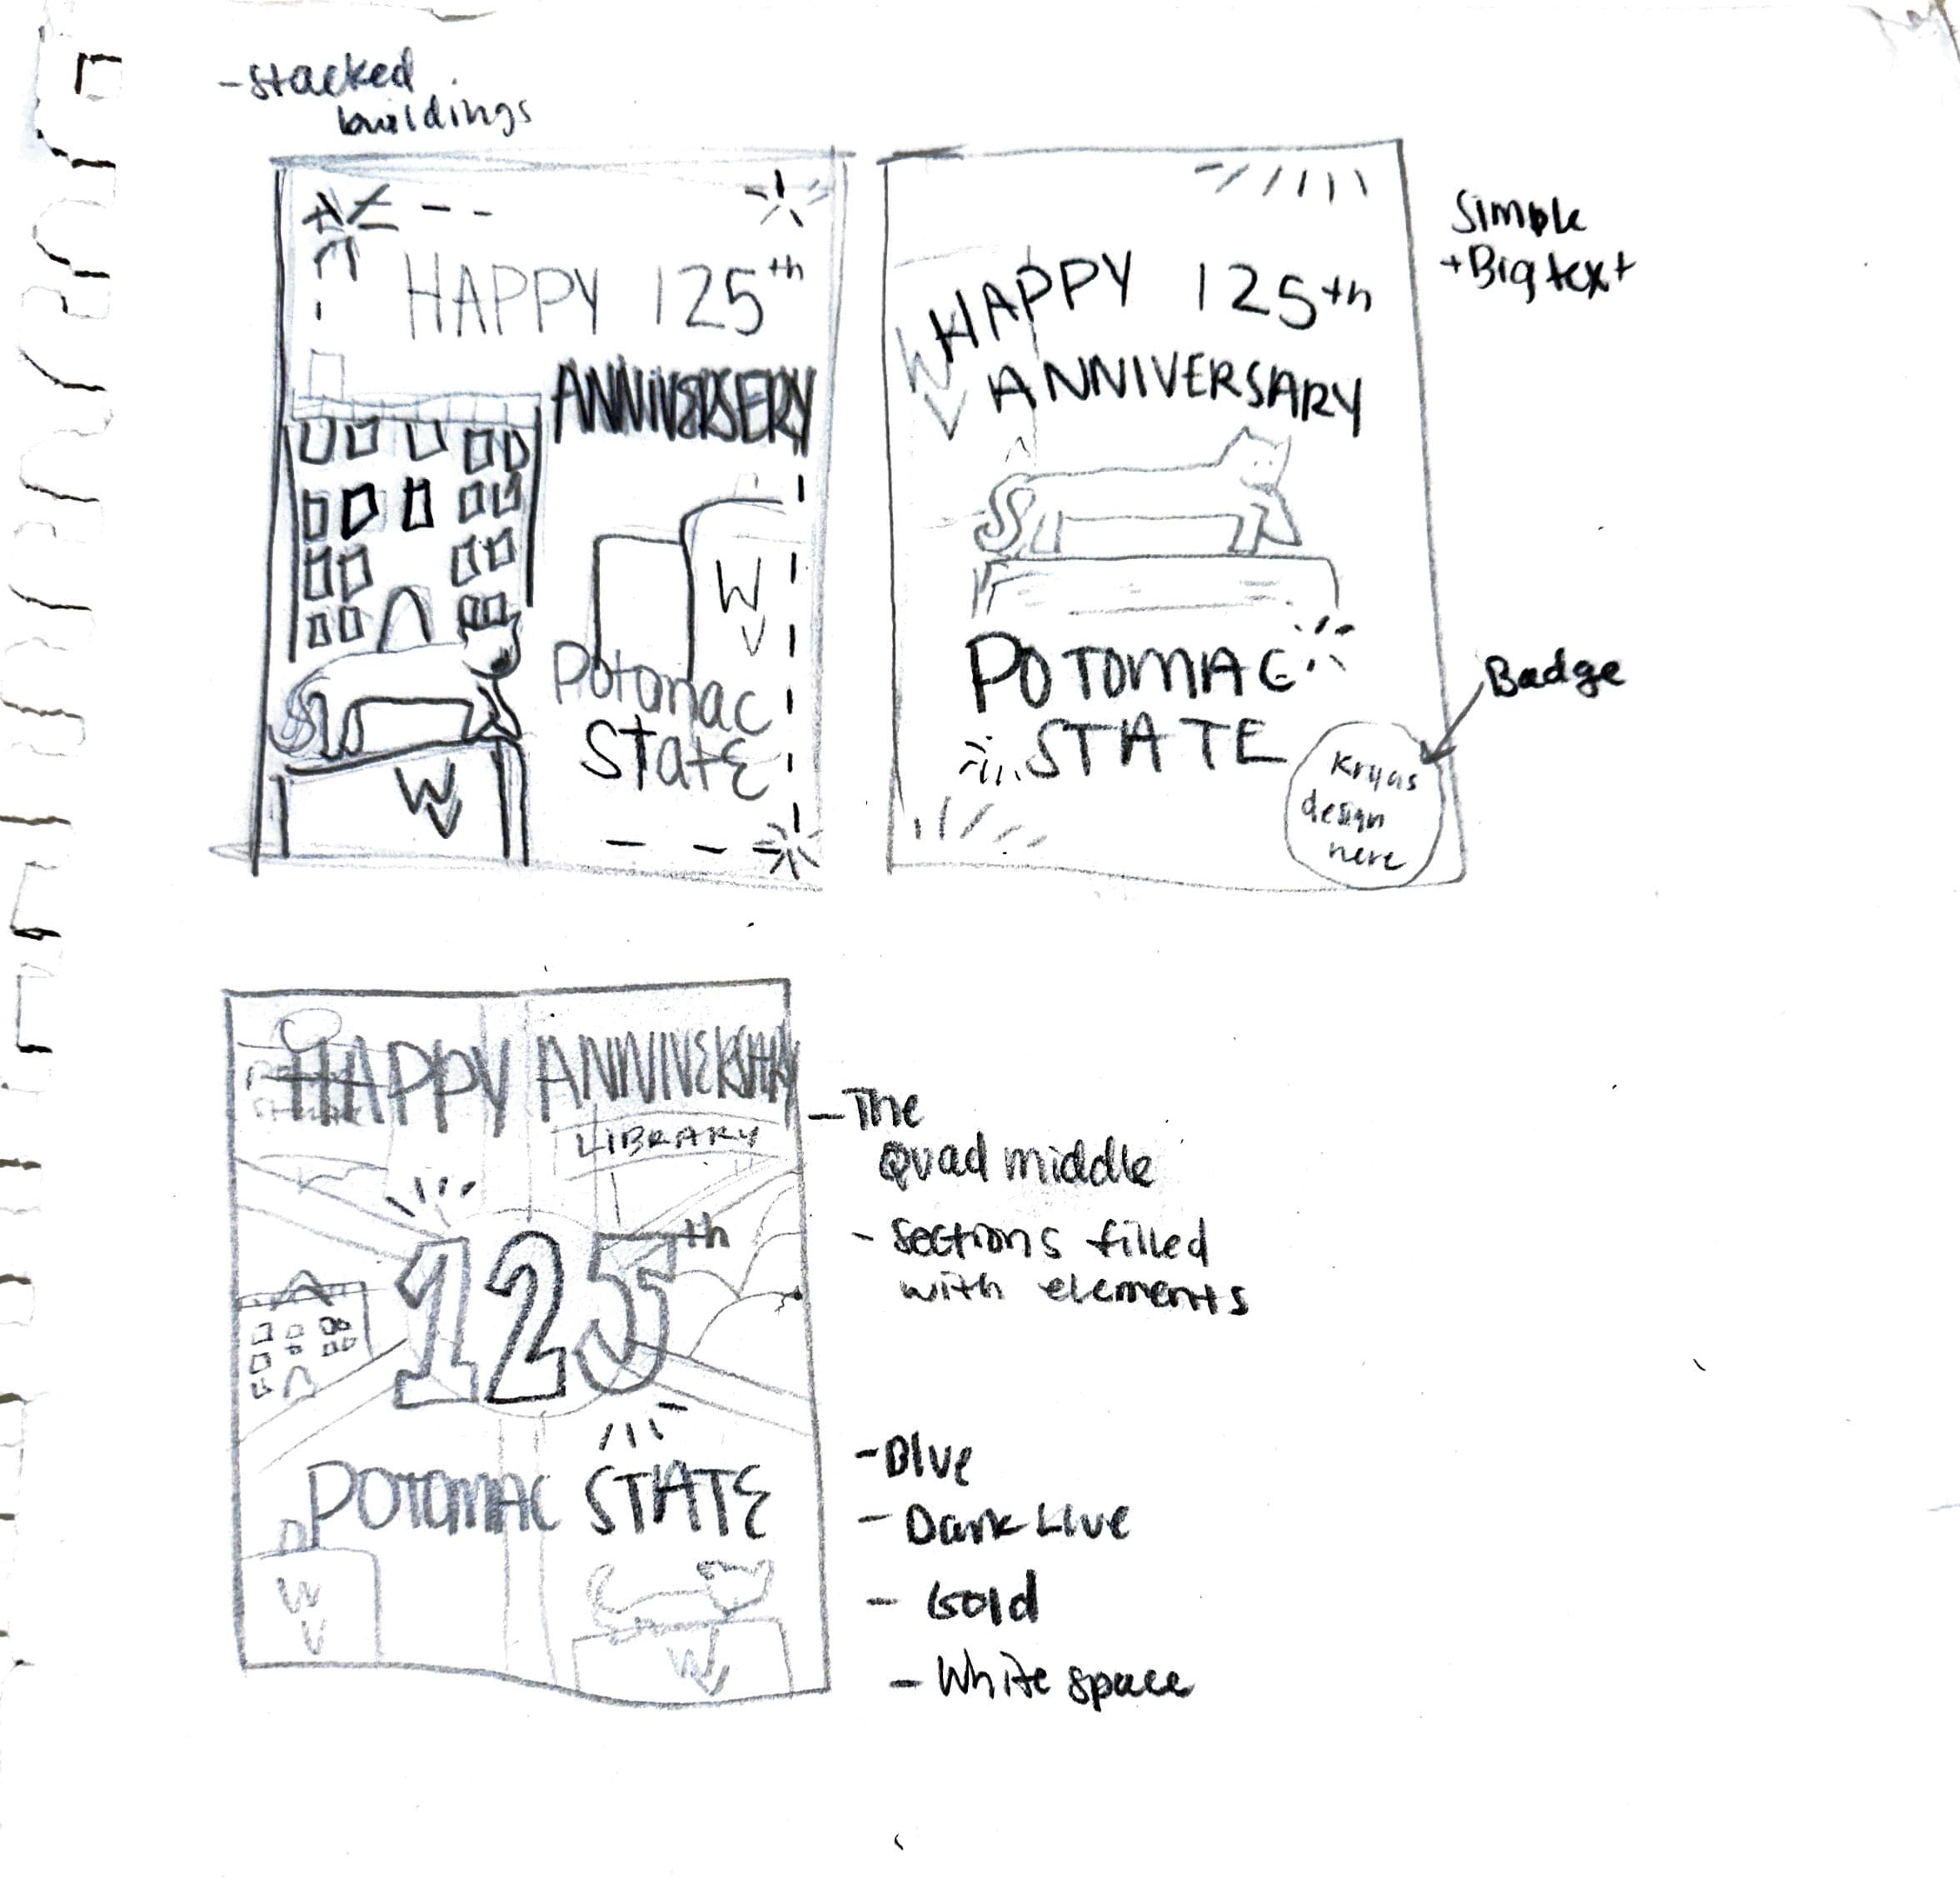 - Stacked
buildings
HAPPY 125th
ANNIVERSERY
W
V
Potomac
State
W
V
Simple
+ Big text
HAPPY 125th
W
V
ANNIVERSARY
POTOMAC
STATE
Badge
Kryas
design
here
HAPPY ANNIVERSARY
LIBRARY
125th
POTOMAC STATE
W
V
W
V
- The
Quad middle
- Sections filled
with elements
- Blue
- Dark Llue
- Gold
- White space